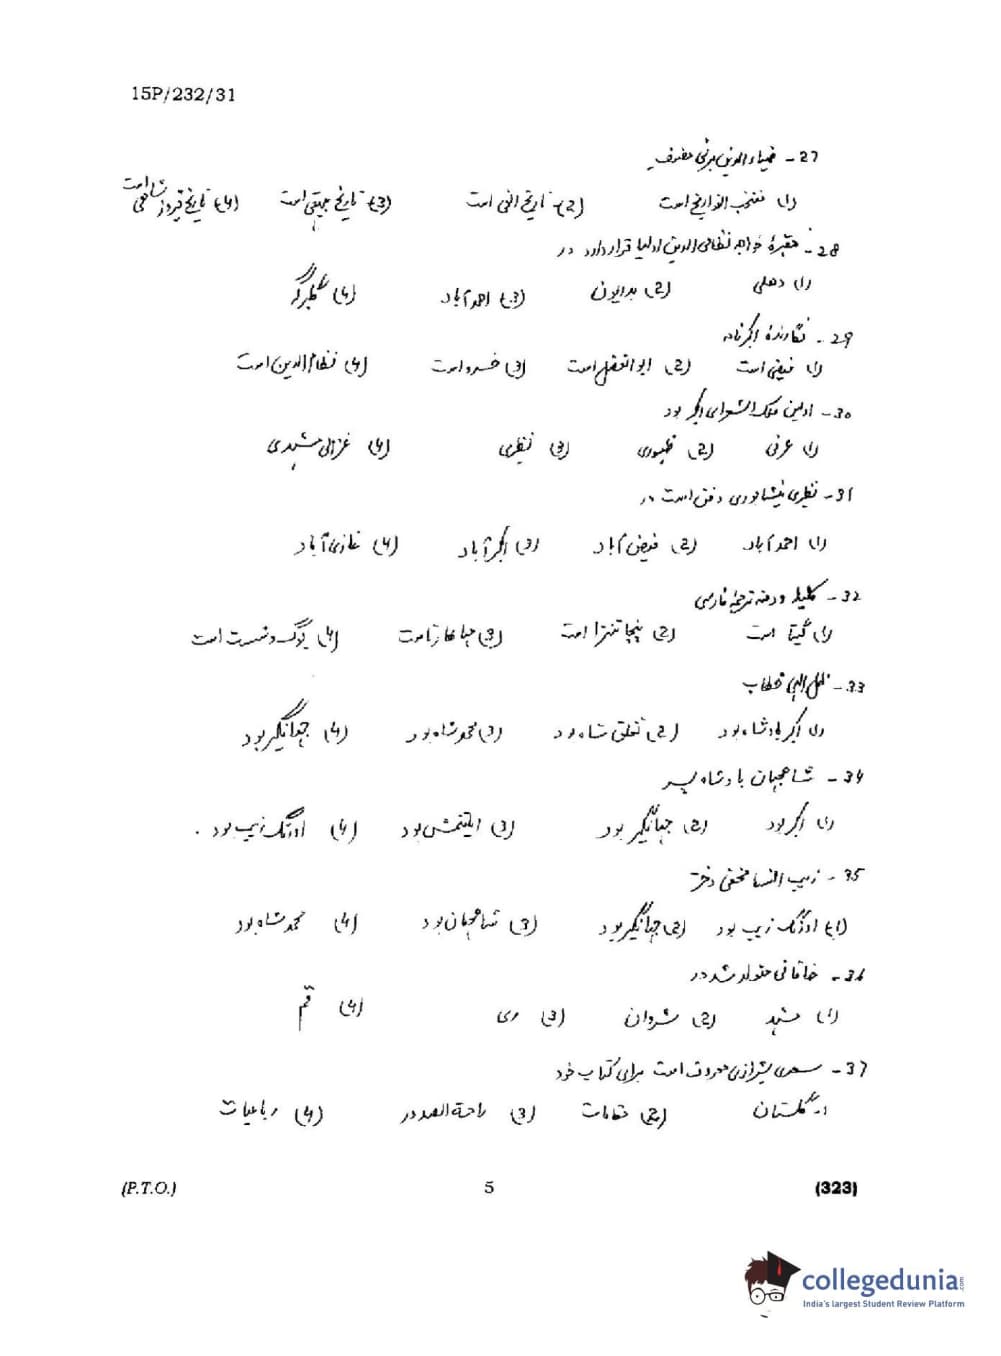 15P/232/31
27 - ضیاء الدین برنی مصنف
(1) منتخب التواریخ است (2) تاریخ الفی است (3) تاریخ بیهقی است (4) تاریخ فیروز شاهی است
28 - مقبرهٔ خواجه نظام الدین اولیا قرار دارد در
(1) دهلی (2) بدایون (3) احمد آباد (4) گلبرگه
29 - نگارندهٔ اکبرنامه
(1) فیضی است (2) ابوالفضل است (3) خسرو است (4) نظام الدین است
30 - اولین ملک الشعرای اکبر بود
(1) عرفی (2) ظهوری (3) نظیری (4) غزالی مشهدی
31 - نظیری نیشابوری دفن است در
(1) احمد آباد (2) فیض آباد (3) اکبر آباد (4) غازی آباد
32 - کلیله و دمنه ترجمهٔ فارسی
(1) گیتا است (2) پنچا تنترا است (3) مها بهارتا است (4) یوگ وشست است
33 - ظل الہی خطاب
(1) اکبر بادشاه بود (2) تغلق شاه بود (3) محمد شاه بود (4) جهانگیر بود
34 - شاهجهان بادشاه پسر
(1) اکبر بود (2) جهانگیر بود (3) ایلتتمش بود (4) اورنگ زیب بود .
35 - زیب النسا مخفی دختر
(1) اورنگ زیب بود (2) جهانگیر بود (3) شاهجهان بود (4) محمد شاه بود
36 - خاقانی متولد شد در
(1) مشهد (2) شروان (3) ری (4) قم
37 - سعدی شیرازی معروف است برای کتاب خود
1. گلستان (2) مقامات (3) راحة الصدور (4) رباعیات
(P.T.O.) 5 (323)
collegedunia.com
India's largest Student Review Platform